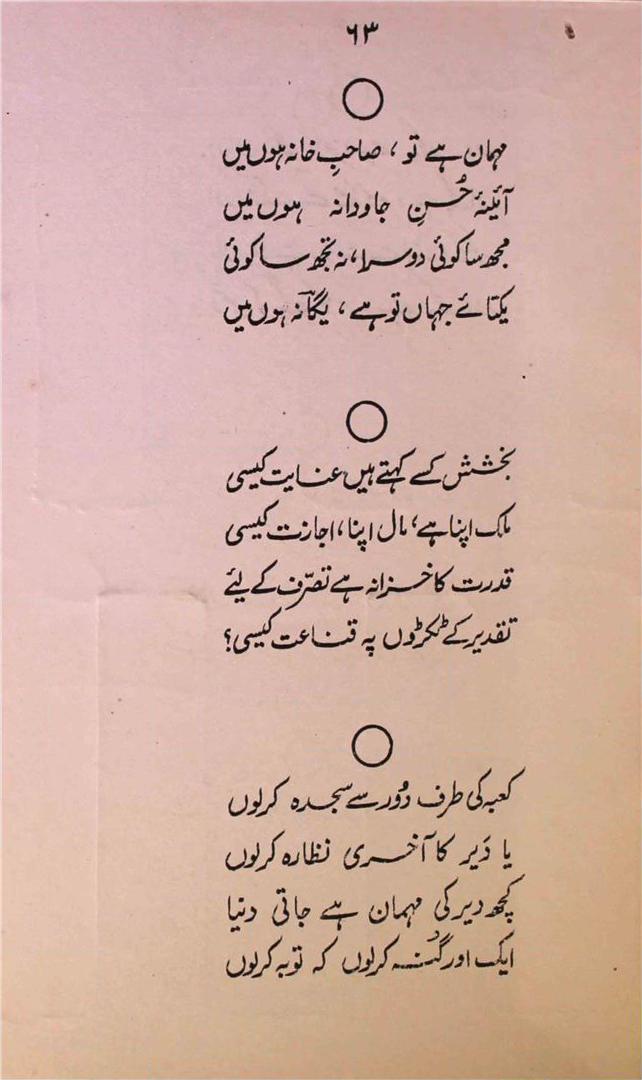 ۶۳
مہمان ہے تو، صاحبِ خانہ ہوں میں
آئینۂ حُسنِ جاودانہ ہوں میں
مجھ سا کوئی دوسرا، نہ تجھ سا کوئی
یکتائے جہاں تو ہے، یگانہ ہوں میں
بخشش کسے کہتے ہیں عنایت کیسی
ملک اپنا ہے، مال اپنا، اجازت کیسی
قدرت کا خزانہ ہے تصرّف کے لیئے
تقدیر کے ٹکڑوں پہ قناعت کیسی؟
کعبہ کی طرف دُور سے سجدہ کرلوں
یا دَیر کا آخری نظارہ کرلوں
کچھ دیر کی مہمان ہے جاتی دنیا
ایک اور گُنہ کرلوں کہ توبہ کرلوں